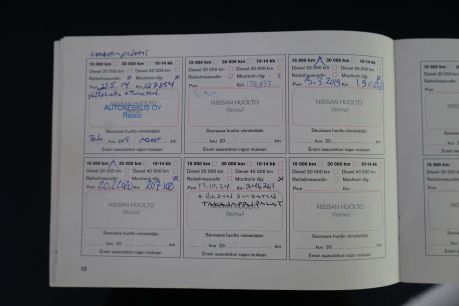 15 000 km 30 000 km 10-14 kk
Diesel 20 000 km Diesel 40 000 km
Raitisilmasuodin Moottorin öljy
Pvm 22.5.14 Km 127854
AUTOKESKUS OY
Raisio
Seuraava huolto viimeistään
kuu 20 15 km
Ensin saavutetun rajan mukaan
15 000 km 30 000 km 10-14 kk
Diesel 20 000 km Diesel 40 000 km
Raitisilmasuodin Moottorin öljy
Pvm Km
NISSAN HUOLTO
(leima)
Seuraava huolto viimeistään
kuu 20 km
Ensin saavutetun rajan mukaan
15 000 km 30 000 km 10-14 kk
Diesel 20 000 km Diesel 40 000 km
Raitisilmasuodin Moottorin öljy
Pvm 5.3.2019 Km
NISSAN HUOLTO
(leima)
Seuraava huolto viimeistään
kuu 20 km
Ensin saavutetun rajan mukaan
15 000 km 30 000 km 10-14 kk
Diesel 20 000 km Diesel 40 000 km
Raitisilmasuodin Moottorin öljy
Pvm 20.2.2020 Km 207100
NISSAN HUOLTO
(leima)
Seuraava huolto viimeistään
kuu 20 km
Ensin saavutetun rajan mukaan
15 000 km 30 000 km 10-14 kk
Diesel 20 000 km Diesel 40 000 km
Raitisilmasuodin Moottorin öljy
Pvm 17.10.24 Km 246261
NISSAN HUOLTO
Seuraava huolto viimeistään
kuu 20 km
Ensin saavutetun rajan mukaan
15 000 km 30 000 km 10-14 kk
Diesel 20 000 km Diesel 40 000 km
Raitisilmasuodin Moottorin öljy
Pvm Km
NISSAN HUOLTO
(leima)
Seuraava huolto viimeistään
kuu 20 km
Ensin saavutetun rajan mukaan
10